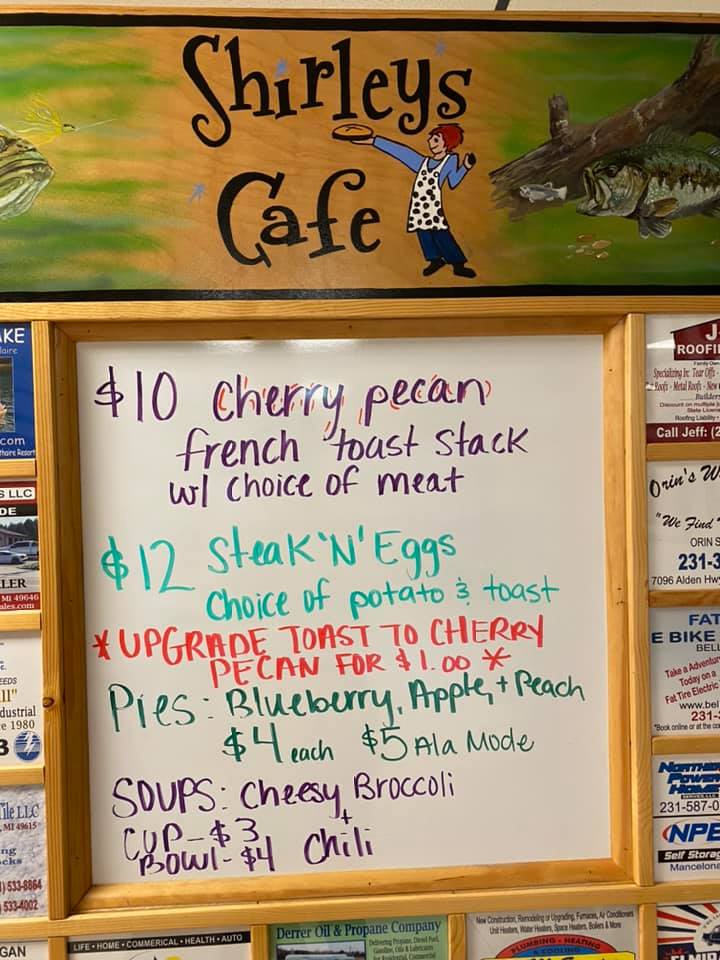 Shirley's
Cafe
$10 Cherry pecan
french toast Stack
w/ Choice of meat
$12 Steak 'N' Eggs
Choice of potato & toast
* UPGRADE TOAST TO CHERRY
PECAN FOR $1.00 *
Pies: Blueberry, Apple, + Peach
$4 each $5 Ala Mode
SOUPS: Cheesy Broccoli
+
CUP - $3
BOWL - $4 Chili
AKE
laire
.com
thaire Resort
S LLC
DE
LER
MI 49646
ales.com
c.
EEDS
ll"
dustrial
e 1980
3
Tile LLC
, MI 49615
ng
cks
) 533-8864
533-4002
GAN
LIFE • HOME • COMMERICAL • HEALTH • AUTO
Derrer Oil & Propane Company
Delivering Propane, Diesel Fuel,
Gasoline, Oils & Lubricants
For Residential, Commercial
New Construction, Remodeling or Upgrading, Furnaces, Air Conditioners
Unit Heaters, Water Heaters, Space Heaters, Boilers & More
PLUMBING • HEATING
& COOLING
J-
ROOFI
Specializing In: Tear Offs -
Roofs - Metal Roofs - New
Builders
Discount on multiple
State Licen
Roofing Liability
Call Jeff: (2
Orin's W
"We Find
ORIN S
231-3
7096 Alden Hw
FAT
E BIKE
BELL
Take a Adventu
Today on a
Fat Tire Electric
www.bel
231-
*Book online or at the co
Northe
Power
Home
231-587-0
NPE
Self Storag
Mancelona
ELMIR